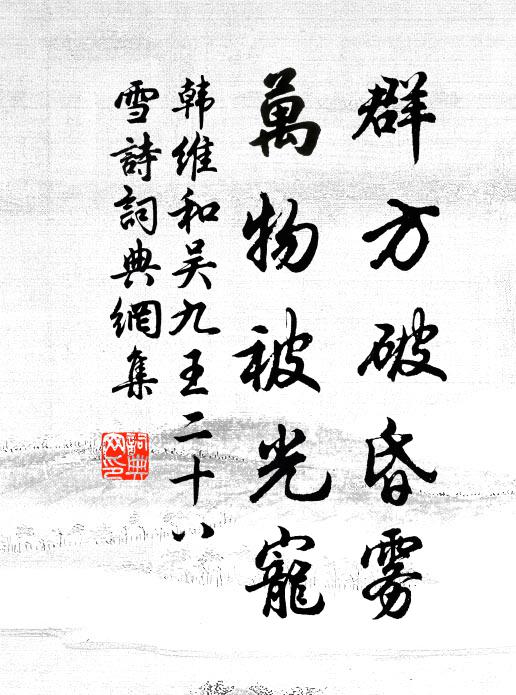 群方破昏雾
萬物被光寵
韩维和吴九王二十八
雪詩詞典網集
詞典网印